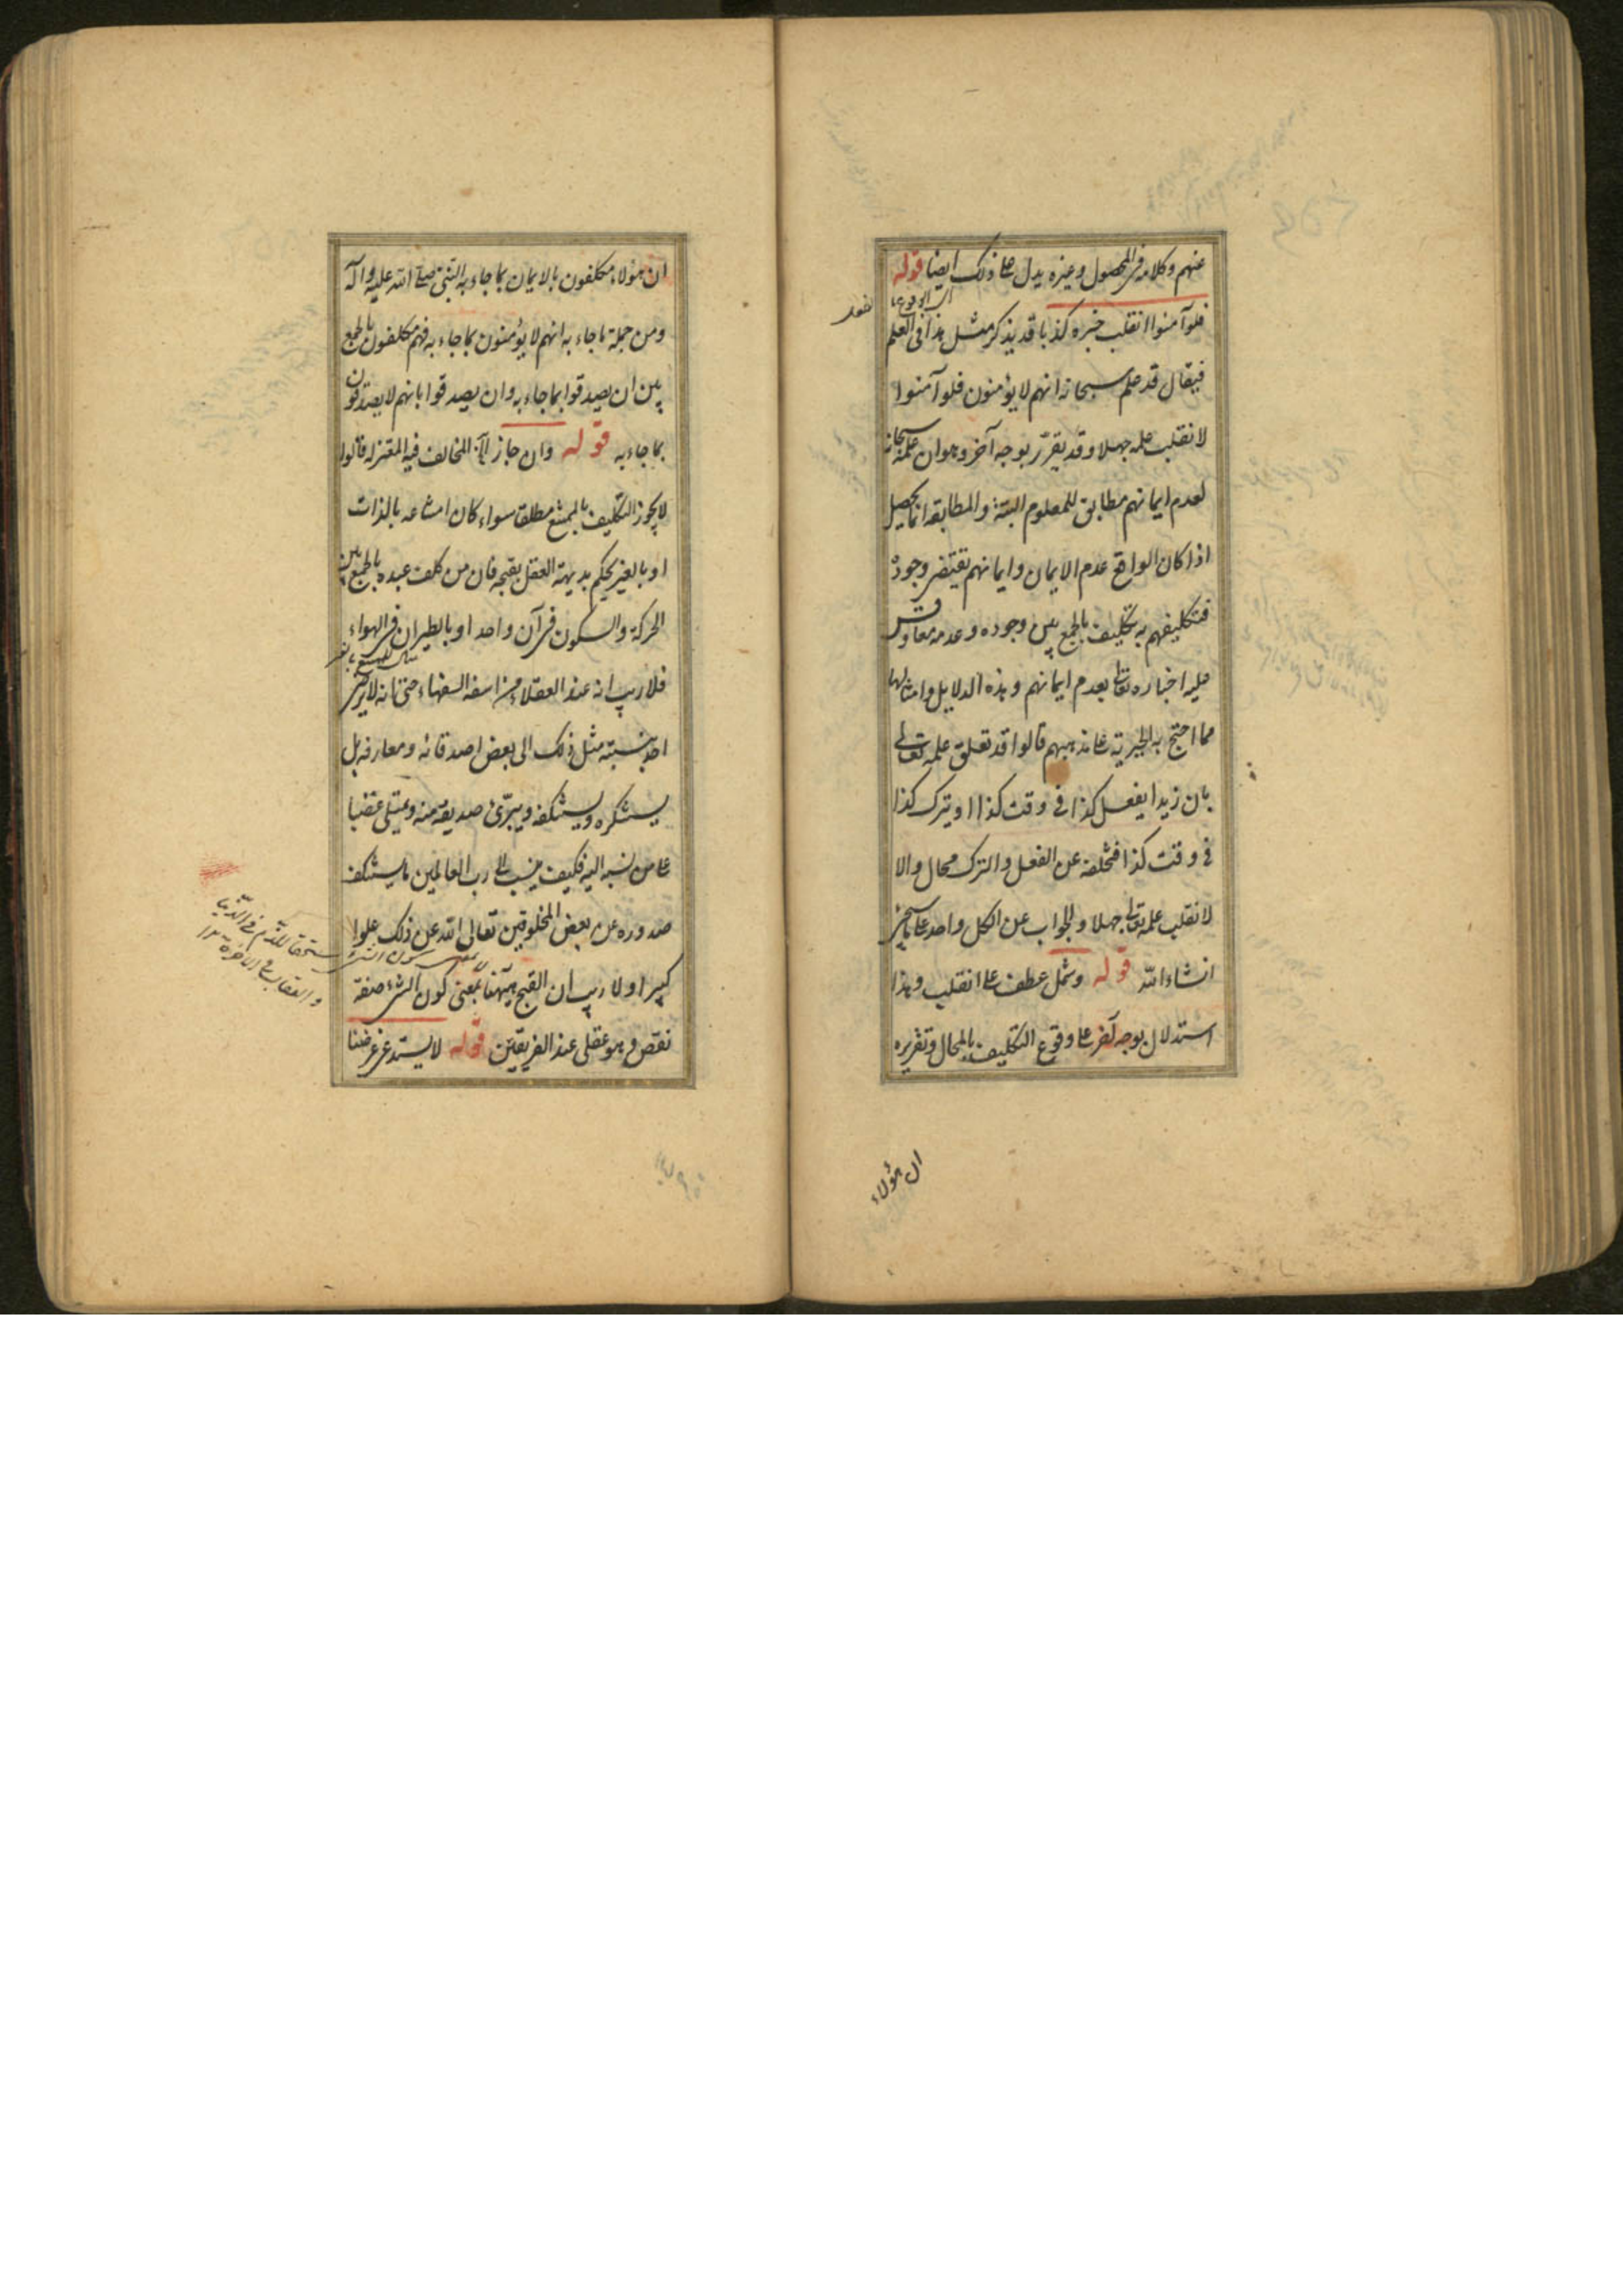 عنهم وكلامه في المحصول وغيره يدل على ذلك ايضا قوله
فلو آمنوا انقلب خبره كذبا قد يذكر مثل هذا في العلم
فيقال قد علم سبحانه انهم لا يؤمنون فلو آمنوا
لانقلب علمه جهلا وقد يقرر بوجه آخر وهو ان علمه سبحانه
لعدم ايمانهم مطابق للمعلوم البتة والمطابقة انما يحصل
اذا كان الواقع عدم الايمان وايمانهم يقتضي وجوده
فتكليفهم به تكليف بالجمع بين وجوده وعدمه معا وقس
عليه اخباره تعالى بعدم ايمانهم وهذه الدلايل وامثالها
مما احتج به الجبرية على مذهبهم قالوا قد تعلق علمه تعالى
بان زيدا يفعل كذا في وقت كذا او يترك كذا
في وقت كذا فتخلفه عن الفعل والترك محال والا
لانقلب علمه تعالى جهلا والجواب عن الكل واحد على ما سيجئ
انشاء الله قوله وشمل عطف على انقلب وهذا
استدلال بوجه آخر على وقوع التكليف بالمحال وتقريره
ان هؤلاء
ان هؤلاء مكلفون بالايمان بما جاء به النبي صلى الله عليه وآله
ومن جملة ما جاء به انهم لا يؤمنون بما جاء به فهم مكلفون بالجمع
بين ان يصدقوا بما جاء به وان يصدقوا بانهم لا يصدقون
بما جاء به قوله وان جاز الخ المخالف فيه المعتزلة قالوا
لا يجوز التكليف بالممتنع مطلقا سواء كان امتناعه بالذات
او بالغير يحكم بديهة العقل بقبحه فان من كلف عبده بالجمع بين
الحركة والسكون في آن واحد او بالطيران في الهواء
فلا ريب انه عند العقلاء من اسفه السفهاء حتى انه لا يرضى
احد بنسبته مثل ذلك الى بعض اصدقائه ومعارفه بل
يستنكره ويستنكفه ويبرئ صديقه منه ويمتلي غضبا
على من نسبه اليه فكيف ينسب الى رب العالمين ما يستنكف
صدوره عن بعض المخلوقين تعالى الله عن ذلك علوا
كبيرا ولا ريب ان القبح ههنا بمعنى كون الشئ صفة
نقص وهو عقلي عند الفريقين قوله لا يستدعي غرضنا
لا بمعنى كون الشئ مستحقا للذم في الدنيا
والعقاب في الآخرة ١٢